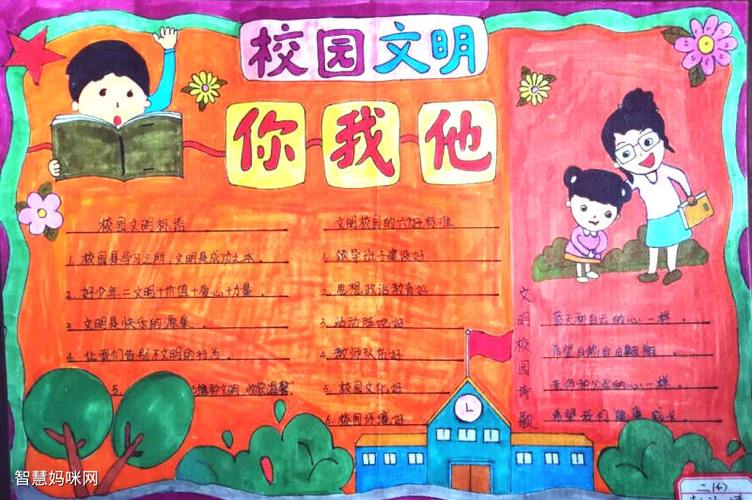 校园文明
你我他
校园文明标语
1. 校园是学习之所,文明是成功之本。
2. 好少年=文明+价值+爱心+力量。
3. 文明是快乐的源泉。
4. 让我们告别不文明的行为。
5. 播种文明,收获温馨
文明校园的六好标准
1. 领导班子建设好
2. 思想政治教育好
3. 活动阵地好
4. 教师队伍好
5. 校园文化好
6. 校园环境好
文明校园诗歌
蓝天和白云的心一样。
希望自由
老师和父母的心一样。
希望我们健康成长。
二(4)
智慧妈咪网